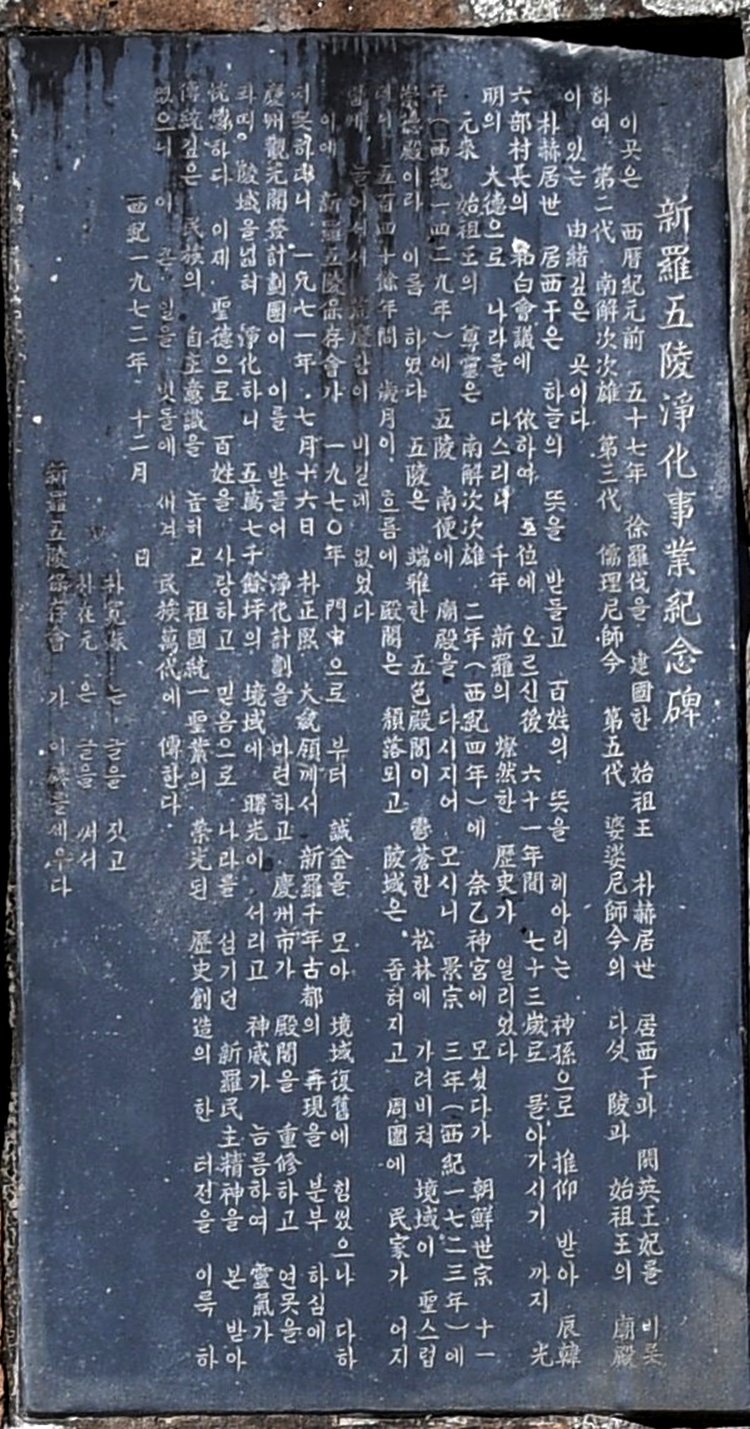 新羅五陵淨化事業紀念碑
이곳은 西曆紀元前 五十七年 徐羅伐을 建國한 始祖王 朴赫居世 居西干과 閼英王妃를 비롯
하여 第二代 南解次次雄 第三代 儒理尼師今 第五代 婆娑尼師今의 다섯 陵과 始祖王의 廟殿
이 있는 由緖깊은 곳이다
朴赫居世 居西干은 하늘의 뜻을 받들고 百姓의 뜻을 헤아리는 神孫으로 推仰 받아 辰韓
六部村長의 和白會議에 依하여 王位에 오르신後 六十一年間 七十三歲로 돌아가시기 까지 光
明의 大德으로 나라를 다스리니 千年 新羅의 燦然한 歷史가 열리었다
元來 始祖王의 尊靈은 南解次次雄 二年(西紀四年)에 奈乙神宮에 모셨다가 朝鮮世宗 十一
年(西紀一四二九年)에 五陵 南便에 廟殿을 다시지어 모시니 景宗 三年(西紀一七二三年)에
崇德殿이라 이름 하였다 五陵은 端雅한 五色殿閣이 鬱蒼한 松林에 가려비쳐 境域이 聖스럽
더니 五百四十餘年間 歲月이 흐름에 殿閣은 頹落되고 陵域은 좁혀지고 周圍에 民家가 어지
럽게 비길데 없었다
이에 新羅五陵保存會가 一九七○年 門中으로 부터 誠金을 모아 境域復舊에 힘썼으나 다하
지못하더니 一九七一年 七月十六日 朴正熙 大統領께서 新羅千年古都의 再現을 분부 하심에
慶州觀光開發計劃團이 이를 받들어 淨化計劃을 마련하고 慶州市가 殿閣을 重修하고 연못을
파며 陵域을넓혀 淨化하니 五萬七千餘坪의 境域에 曙光이 서리고 神威가 늠름하여 靈氣가
恍惚하다 이제 聖德으로 百姓을 사랑하고 믿음으로 나라를 섬기던 新羅民主精神을 본 받아
傳統깊은 民族의 自主意識을 높히고 祖國統一聖業의 榮光된 歷史創造의 한 터전을 이룩 하
였으니 이 큰 일을 빗돌에 새겨 民族萬代에 傳한다
西紀一九七二年 十二月 日
는 글을 짓고
在元 은 글을 써서
新羅五陵保存會 가 이 碑를세우다